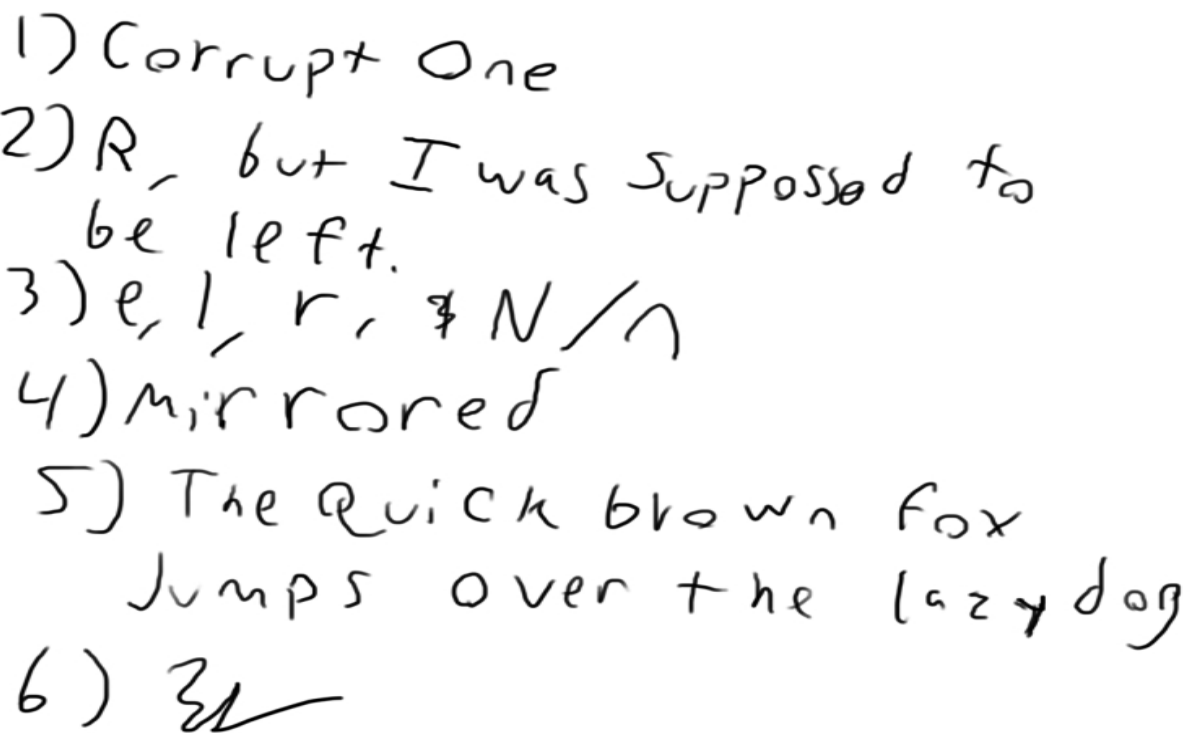 1) Corrupt One
2) R, but I was suppossed to
be left.
3) e, l, r, & N/n
4) Mirrored
5) The Quick brown fox
Jumps over the lazy dog
6)